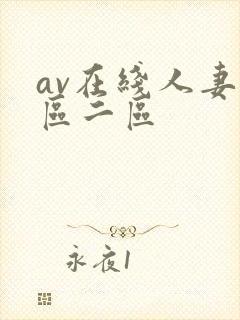 av在綫人妻
區二區
永夜1